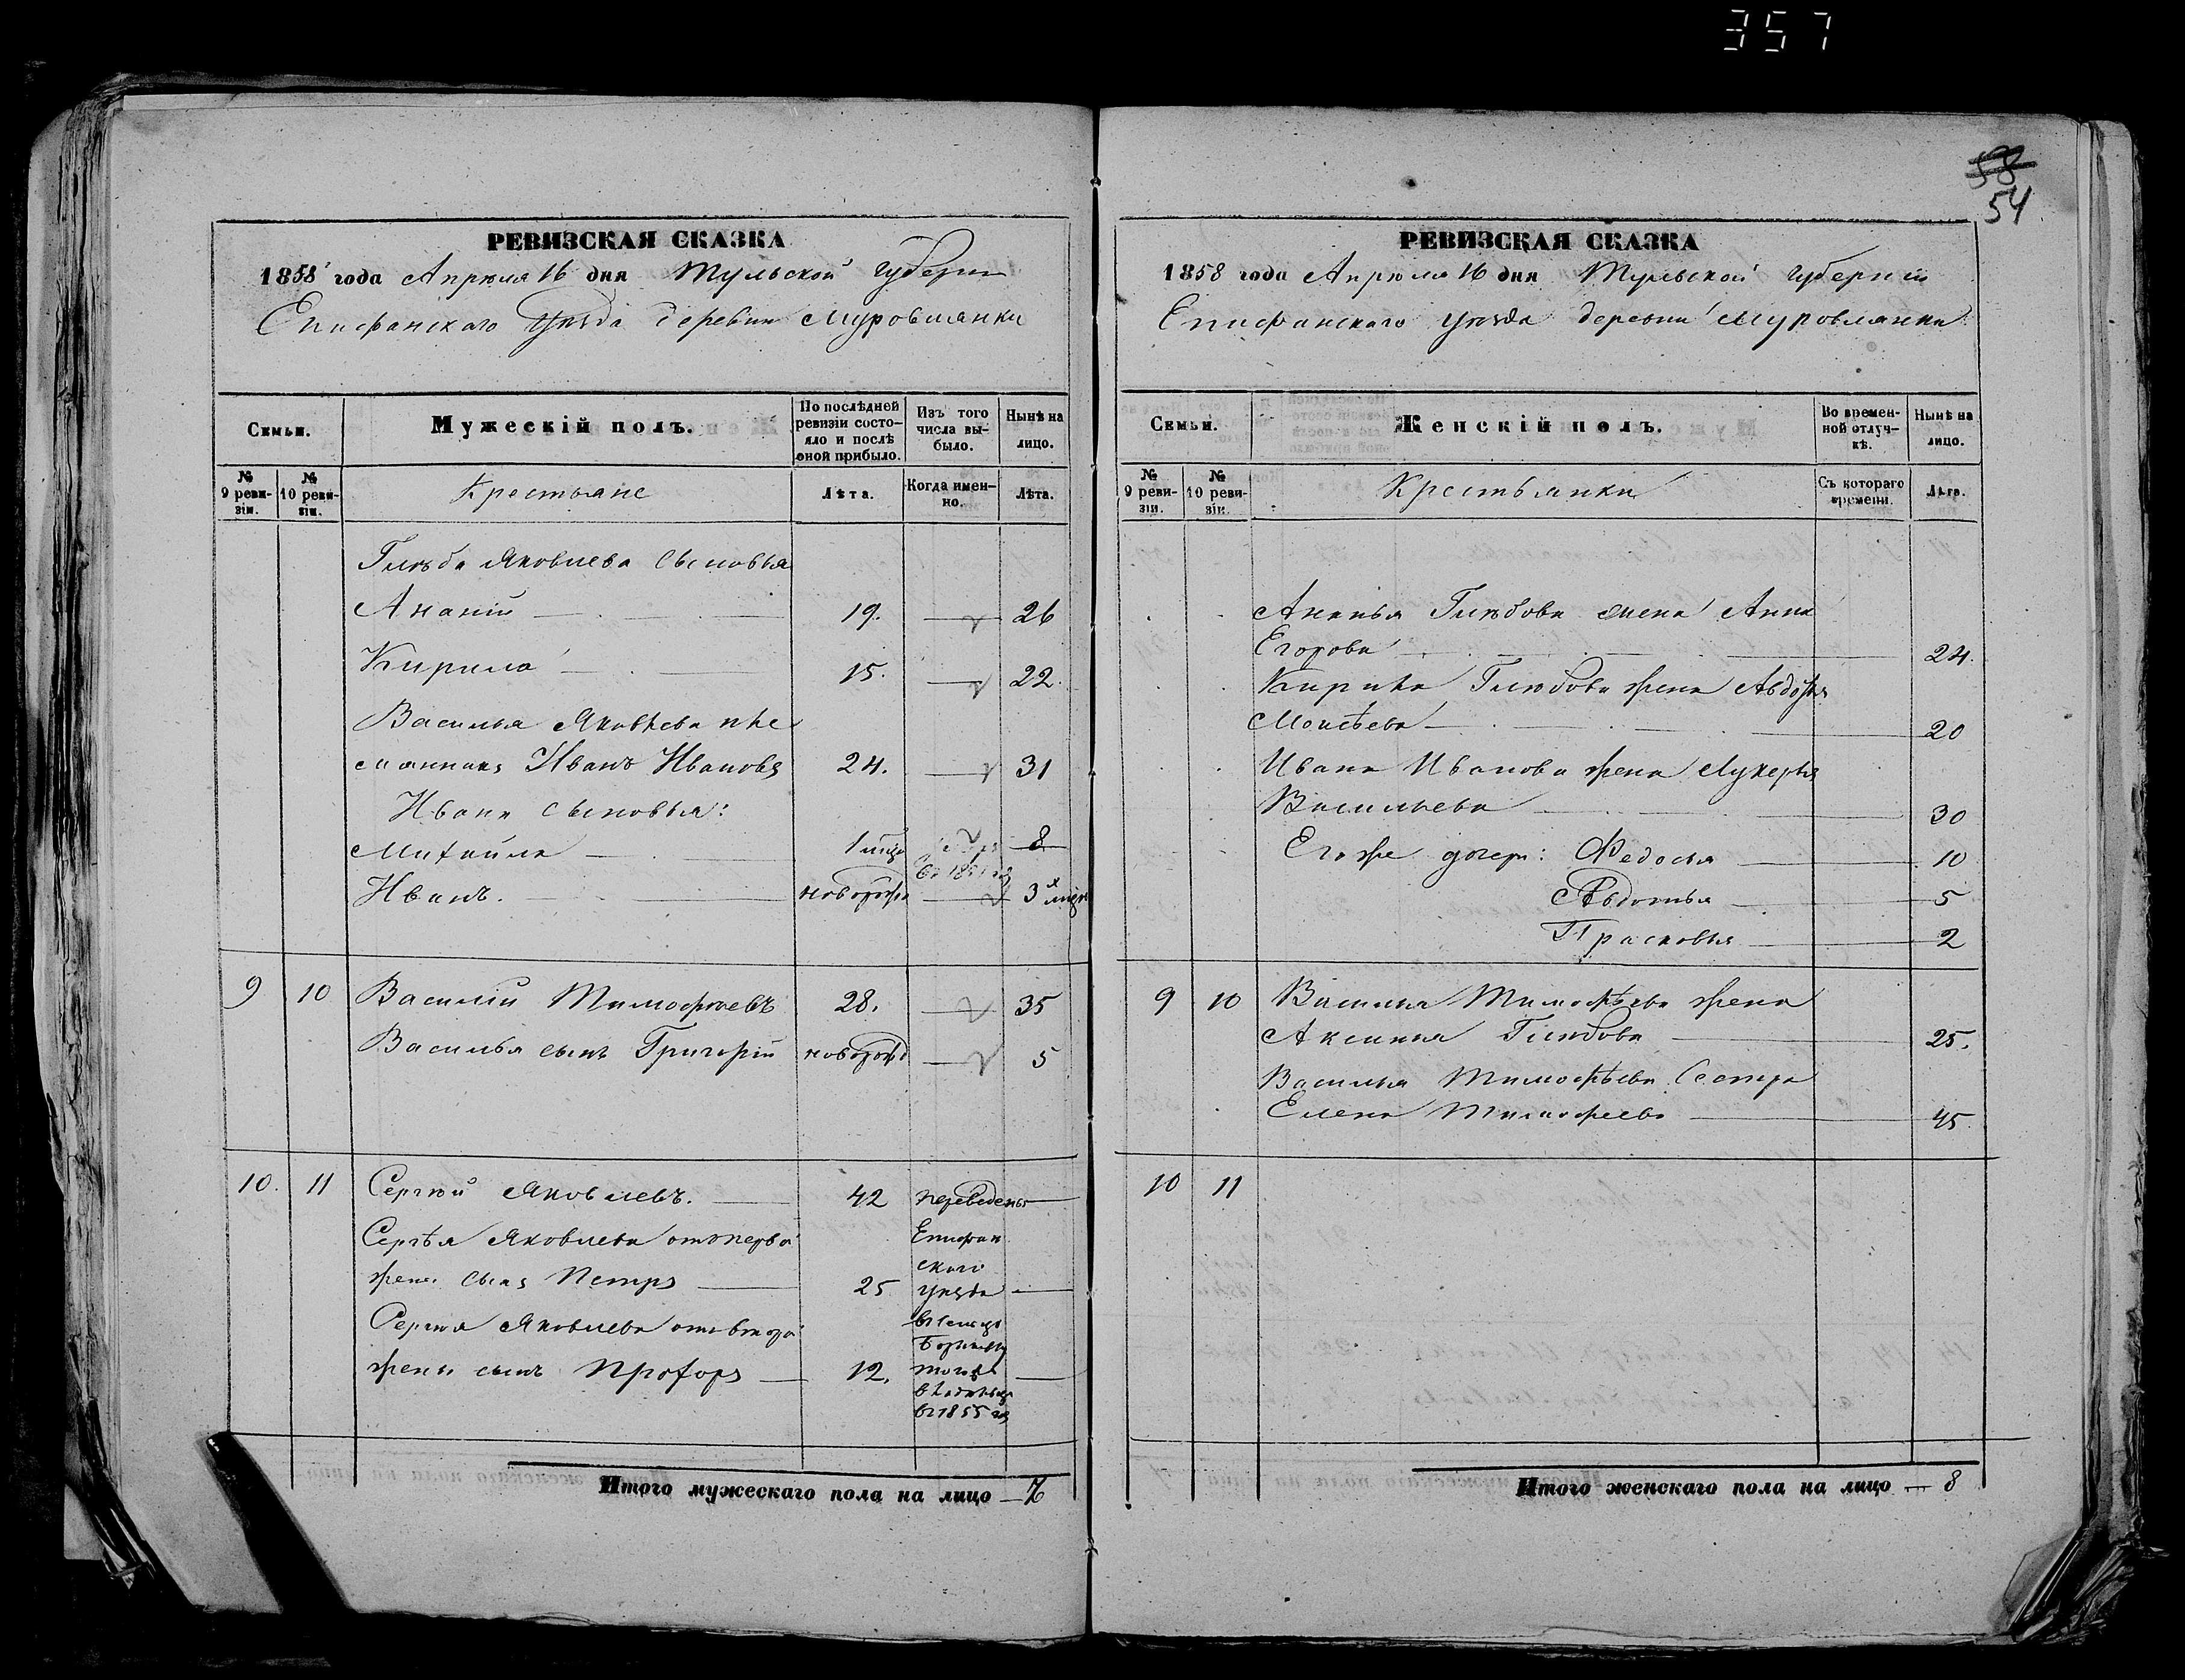 357
53
54
РЕВИЗСКАЯ СКАЗКА
1858 года Апрѣля 16 дня Тульской губерніи
Епифанскаго уѣзда деревни Муровлянки
Семьи.
Мужескій полъ.
По послѣдней ревизіи состояло и послѣ оной прибыло.
Изъ того числа выбыло.
Нынѣ на лицо.
№ 9 ревизіи.
№ 10 ревизіи.
Крестьяне
Лѣта.
Когда именно.
Лѣта.
Глѣба Яковлева сыновья
Ананій 19. 26
Кирила 15. 22.
Василья Яковлева пле
мянникъ Иванъ Ивановъ 24. 31
Ивана сыновья:
Михайла 8
Иванъ. новорожд 3х
9 10 Василій Тимофѣевъ 28. 35
Василья сынъ Григорій новорожд 5
10. 11 Сергѣй Яковлевъ. 42 переведены
Сергѣя Яковлева отъ первой Епифан
скаго
жены сынъ Петръ 25 уѣзда
Сергѣя Яковлева отъ второй
жены сынъ Прохоръ 12.
въ 1855 го
Итого мужескаго пола на лицо — 7
РЕВИЗСКАЯ СКАЗКА
1858 года Апрѣля 16 дня Тульской губерніи
Епифанскаго уѣзда деревни Муровлянки
Семьи.
Женскій полъ.
Во временной отлучкѣ.
Нынѣ на лицо.
№ 9 ревизіи.
№ 10 ревизіи.
Крестьянки
Съ котораго времени.
Лѣта.
Ананья Глѣбова жена Анна
Егорова 24.
Кирила Глѣбова жена Авдотья
Моисѣева 20
Ивана Иванова жена Лукерья
Васильева 30
Его же дочери: Федосья 10
Авдотья 5
Прасковья 2
9 10 Василья Тимофѣева жена
Аксинья Глѣбова 25.
Василья Тимофѣева Сестра
Елена Тимофеева 45.
10 11
Итого женскаго пола на лицо — 8